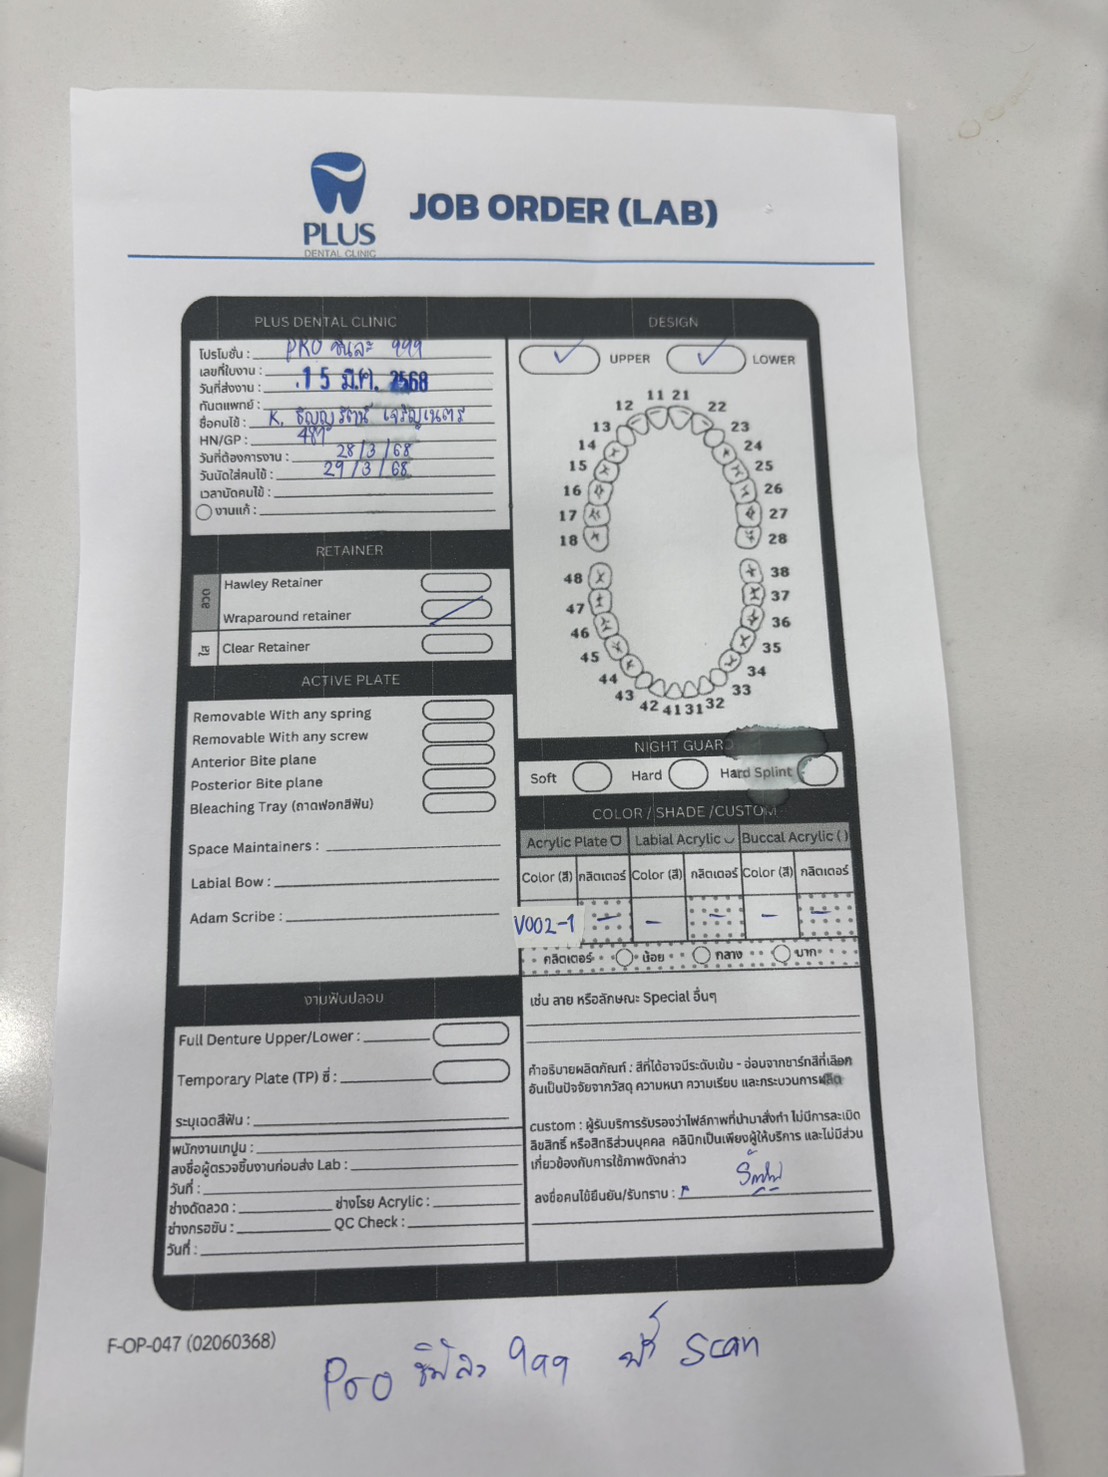 PLUS
DENTAL CLINIC
JOB ORDER (LAB)
PLUS DENTAL CLINIC
โปรโมชั่น : PRO ชิ้นละ 999
เลขที่ใบงาน :
วันที่ส่งงาน : 15 มี.ค. 2568
ทันตแพทย์ :
ชื่อคนไข้ : K. ธัญญรัตน์ เจริญเนตร
HN/GP : 489
วันที่ต้องการงาน : 28/3/68
วันนัดใส่คนไข้ : 29/3/68
เวลานัดคนไข้ :
งานแก้ :
RETAINER
ลวด
Hawley Retainer
Wraparound retainer
ใส
Clear Retainer
ACTIVE PLATE
Removable With any spring
Removable With any screw
Anterior Bite plane
Posterior Bite plane
Bleaching Tray (ถาดฟอกสีฟัน)
Space Maintainers :
Labial Bow :
Adam Scribe :
งานฟันปลอม
Full Denture Upper/Lower :
Temporary Plate (TP) ซี่ :
ระบุเฉดสีฟัน :
พนักงานเทปูน :
ลงชื่อผู้ตรวจชิ้นงานก่อนส่ง Lab :
วันที่ :
ช่างดัดลวด : ช่างโรย Acrylic :
ช่างกรอขัน : QC Check :
วันที่ :
DESIGN
UPPER LOWER
11 21
12 22
13 23
14 24
15 25
16 26
17 27
18 28
48 38
47 37
46 36
45 35
44 34
43 33
42 41 31 32
NIGHT GUARD
Soft Hard Hard Splint
COLOR / SHADE /CUSTOM
Acrylic Plate Labial Acrylic Buccal Acrylic ( )
Color (สี) กลิตเตอร์ Color (สี) กลิตเตอร์ Color (สี) กลิตเตอร์
V002-1 – – – – –
กลิตเตอร์ น้อย กลาง มาก
เช่น ลาย หรือลักษณะ Special อื่นๆ
คำอธิบายผลิตภัณฑ์ : สีที่ได้อาจมีระดับเข้ม - อ่อนจากชาร์ทสีที่เลือก
อันเป็นปัจจัยจากวัสดุ ความหนา ความเรียบ และกระบวนการผลิต
custom : ผู้รับบริการรับรองว่าไฟล์ภาพที่นำมาสั่งทำ ไม่มีการละเมิด
ลิขสิทธิ์ หรือสิทธิส่วนบุคคล คลินิกเป็นเพียงผู้ให้บริการ และไม่มีส่วน
เกี่ยวข้องกับการใช้ภาพดังกล่าว
ลงชื่อคนไข้ยืนยัน/รับทราบ :
F-OP-047 (02060368)
Pro ชิ้นละ 999 ฟรี scan